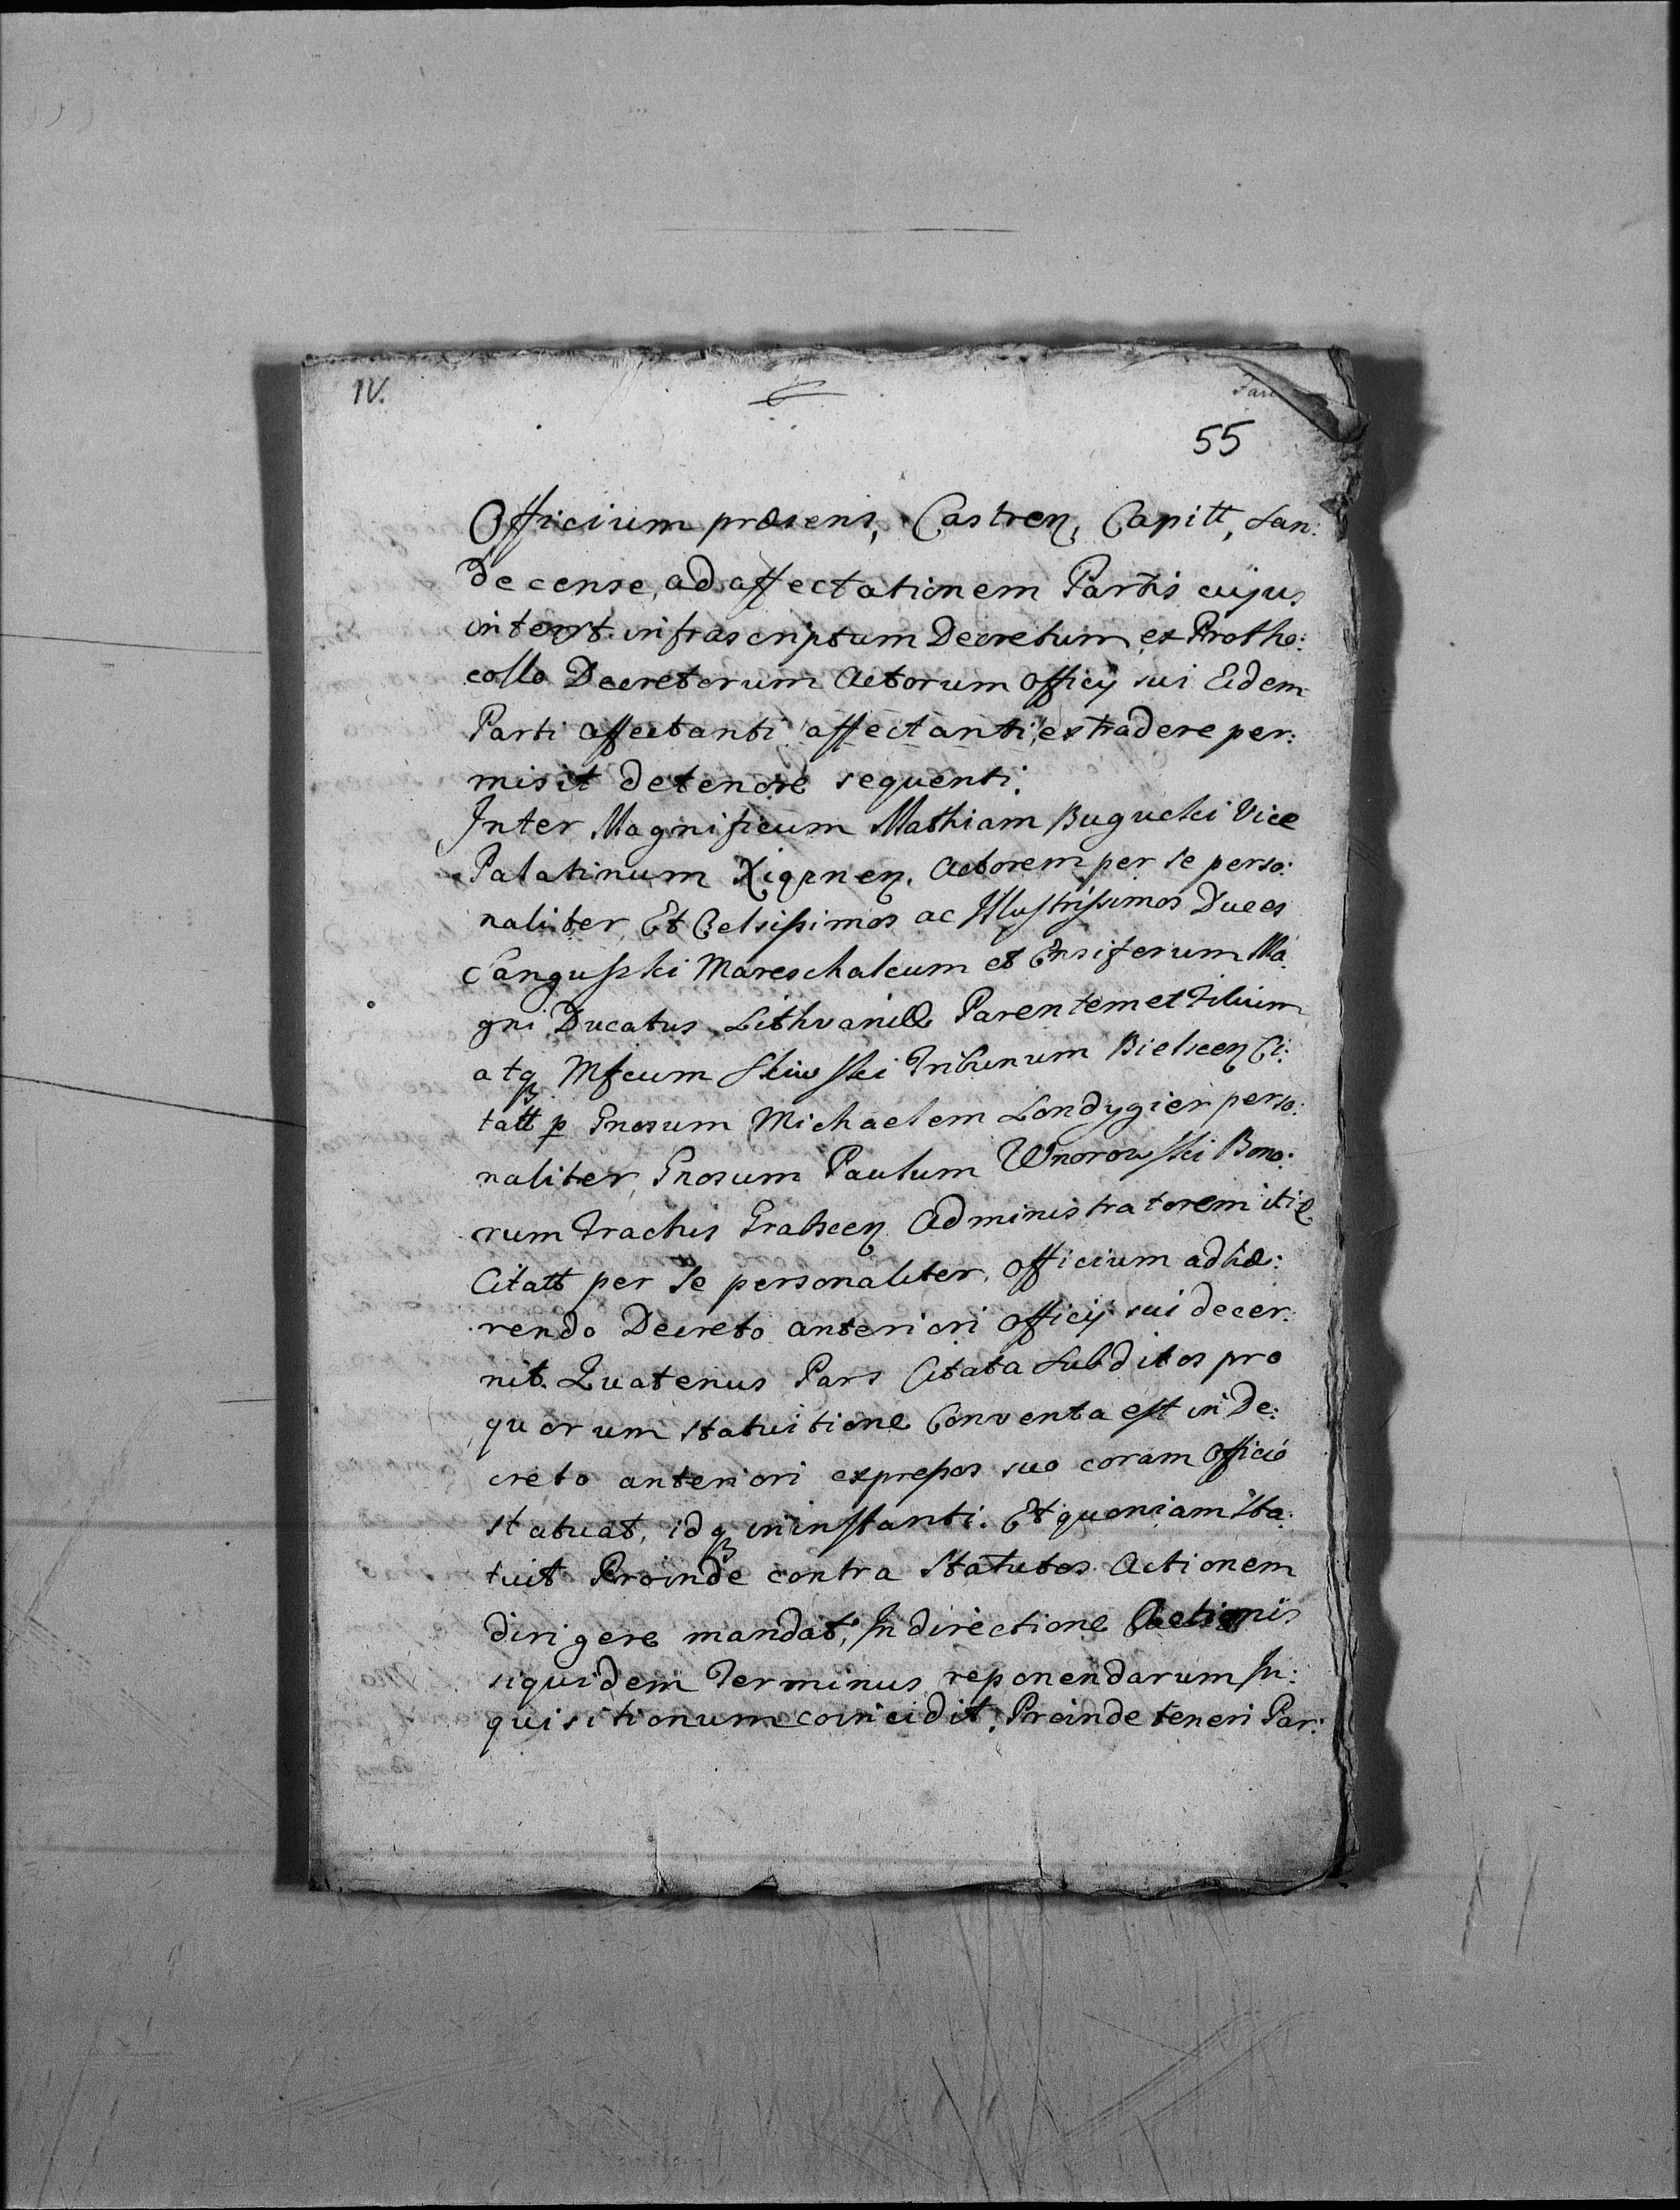 IV.
55
Officium præsens, Castren, Capitt, San:
decense, ad affectationem Partis cujus
interest infrascriptum Decretum, ex Protho:
collo Decretorum Actorum Officij sui Eidem
Parti affectanti affectanti, extradere per:
misit de tenore sequenti.
Inter Magnificum Mathiam Bugucki Vice
Palatinum Xiqznen. Actorem per se perso:
naliter, Et Celsissimos ac Illustrissimos Duces
Sanguszki Mareschalcum et Ensiferum Ma
gni Ducatus Lithvaniæ Parentem et Filium
atq Mfcum Skiwski Tribunum Bielscen Ci:
tatt p Gnosum Michaelem Londygier perso:
naliter, Gnosum Paulum Wnorowski Bono:
rum Tractus Grabscen Administratorem itić
Citatt per se personaliter, Officium adhæ:
rendo Decreto anteriori Officij sui decer:
nit. Quatenus Pars Citata Subditos pro
quorum statuitione Conventa est in De:
creto anteriori expressos suo coram Officio
statuat, idq in instanti. Et quoniam sta:
tuit Proinde contra Statutos Actionem
dirigere mandat, In directione Actionis
siquidem Terminus reponendarum In:
quisitionum coincidit, Proinde teneri Par: